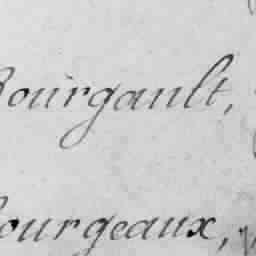 Bourgault,
Bourgeaux,